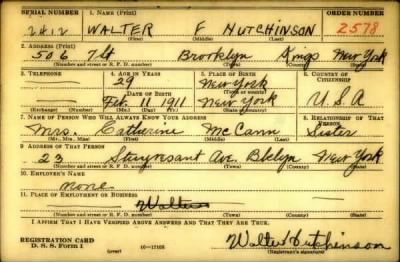 SERIAL NUMBER 1. NAME (Print) ORDER NUMBER
2412 WALTER F HUTCHINSON 2578
(First) (Middle) (Last)
2. ADDRESS (Print)
506 7 St Brooklyn Kings New York
(Number and street or R. F. D. number) (Town) (County) (State)
3. TELEPHONE 4. AGE IN YEARS 5. PLACE OF BIRTH 6. COUNTRY OF CITIZENSHIP
29 New York
(Town or county)
DATE OF BIRTH
Feb. 11 1911 New York U.S.A
(Exchange) (Number) (Mo.) (Day) (Yr.) (State or country)
7. NAME OF PERSON WHO WILL ALWAYS KNOW YOUR ADDRESS 8. RELATIONSHIP OF THAT PERSON
Mrs. Catherine McCann Sister
(Mr., Mrs., Miss) (First) (Middle) (Last)
9. ADDRESS OF THAT PERSON
23 Stuyvesant Av. Bklyn New York
(Number and street or R. F. D. number) (Town) (County) (State)
10. EMPLOYER'S NAME
none
11. PLACE OF EMPLOYMENT OR BUSINESS
(Number and street or R. F. D. number) (Town) (County) (State)
I AFFIRM THAT I HAVE VERIFIED ABOVE ANSWERS AND THAT THEY ARE TRUE.
REGISTRATION CARD
D. S. S. FORM 1 16-17105 Walter Hutchinson
(Registrant's signature)